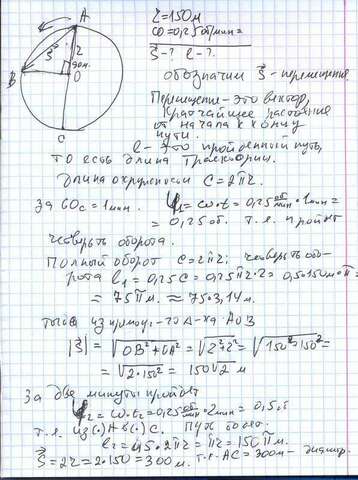 A
r
S⃗
90°
B
O
C
r=150м
ω=0,25об/мин
S⃗-? l-?
обозначим S⃗-перемещение
Перемещение - это вектор,
кратчайшее расстояние
от начала к концу
пути.
l - это пройденный путь,
то есть длина траектории.
Длина окружности C=2πr.
За 60с=1мин. φ₁=ω·t=0,25 об/мин·1мин=
=0,25об. т.е. пройдёт
четверть оборота.
Полный оборот C=2πr; четверть обо-
рота l₁=0,25C=0,25π2·r=0,5·150м·π=
=75πм. ≈75·3,14м.
из прямоуг-го Δ-ка AOB
|S⃗|=√OB²+OA²=√r²+r²=√150²+150²=
=√2·150²=150√2 м
За две минуты пройдёт
φ₂=ω·t₂=0,25об/мин·2мин=0,5об
т.е. из(·)A в(·)C. Путь
l₂=0,5·2πr=πr=150πм.
S⃗=2r=2·150=300м. т.к. AC=300м-диаметр.